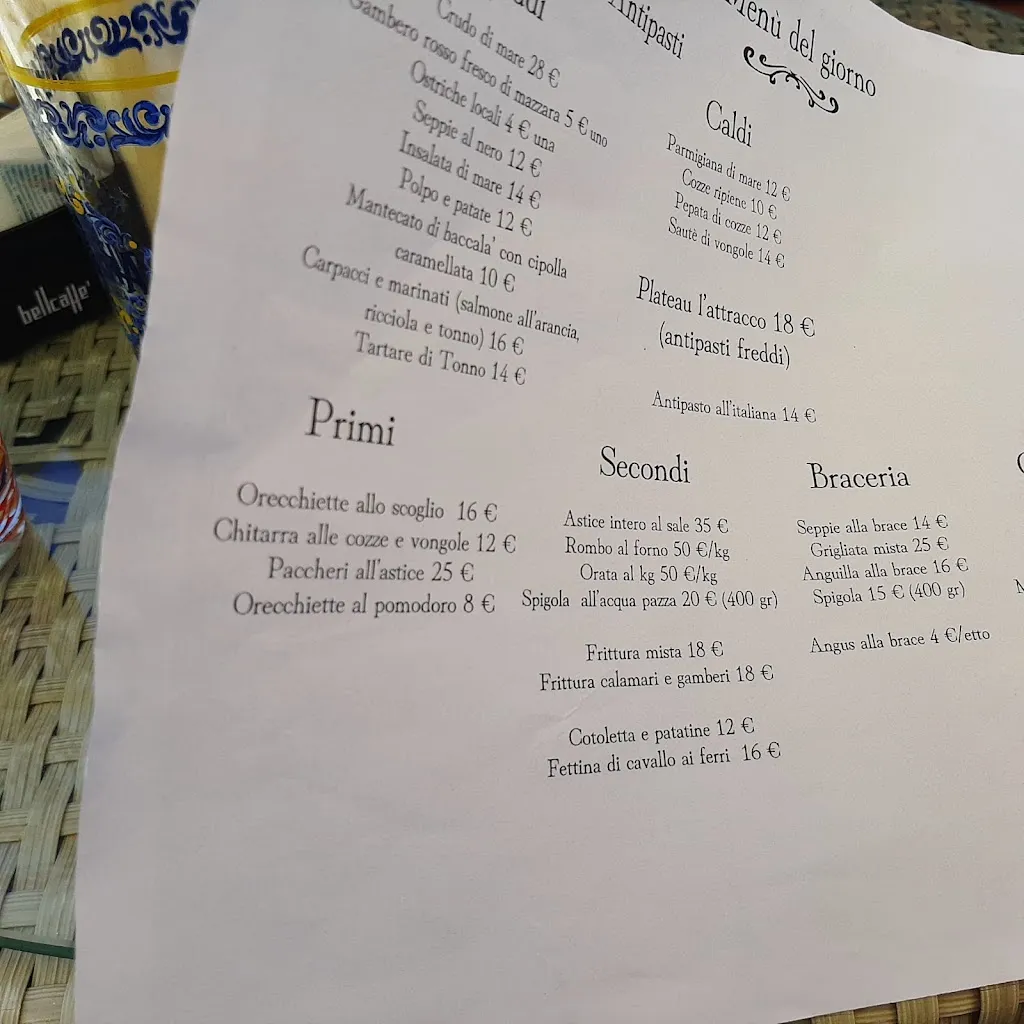 Menù del giorno
Antipasti
Crudo di mare 28 €
Gambero rosso fresco di mazzara 5 € uno
Ostriche locali 4 € una
Seppie al nero 12 €
Insalata di mare 14 €
Polpo e patate 12 €
Mantecato di baccala' con cipolla
caramellata 10 €
Carpacci e marinati (salmone all'arancia,
ricciola e tonno) 16 €
Tartare di Tonno 14 €
Caldi
Parmigiana di mare 12 €
Cozze ripiene 10 €
Pepata di cozze 12 €
Sautè di vongole 14 €
Plateau l'attracco 18 €
(antipasti freddi)
Antipasto all'italiana 14 €
Primi
Orecchiette allo scoglio 16 €
Chitarra alle cozze e vongole 12 €
Paccheri all'astice 25 €
Orecchiette al pomodoro 8 €
Secondi
Astice intero al sale 35 €
Rombo al forno 50 €/kg
Orata al kg 50 €/kg
Spigola all'acqua pazza 20 € (400 gr)
Frittura mista 18 €
Frittura calamari e gamberi 18 €
Cotoletta e patatine 12 €
Fettina di cavallo ai ferri 16 €
Braceria
Seppie alla brace 14 €
Grigliata mista 25 €
Anguilla alla brace 16 €
Spigola 15 € (400 gr)
Angus alla brace 4 €/etto
bellcaffe'